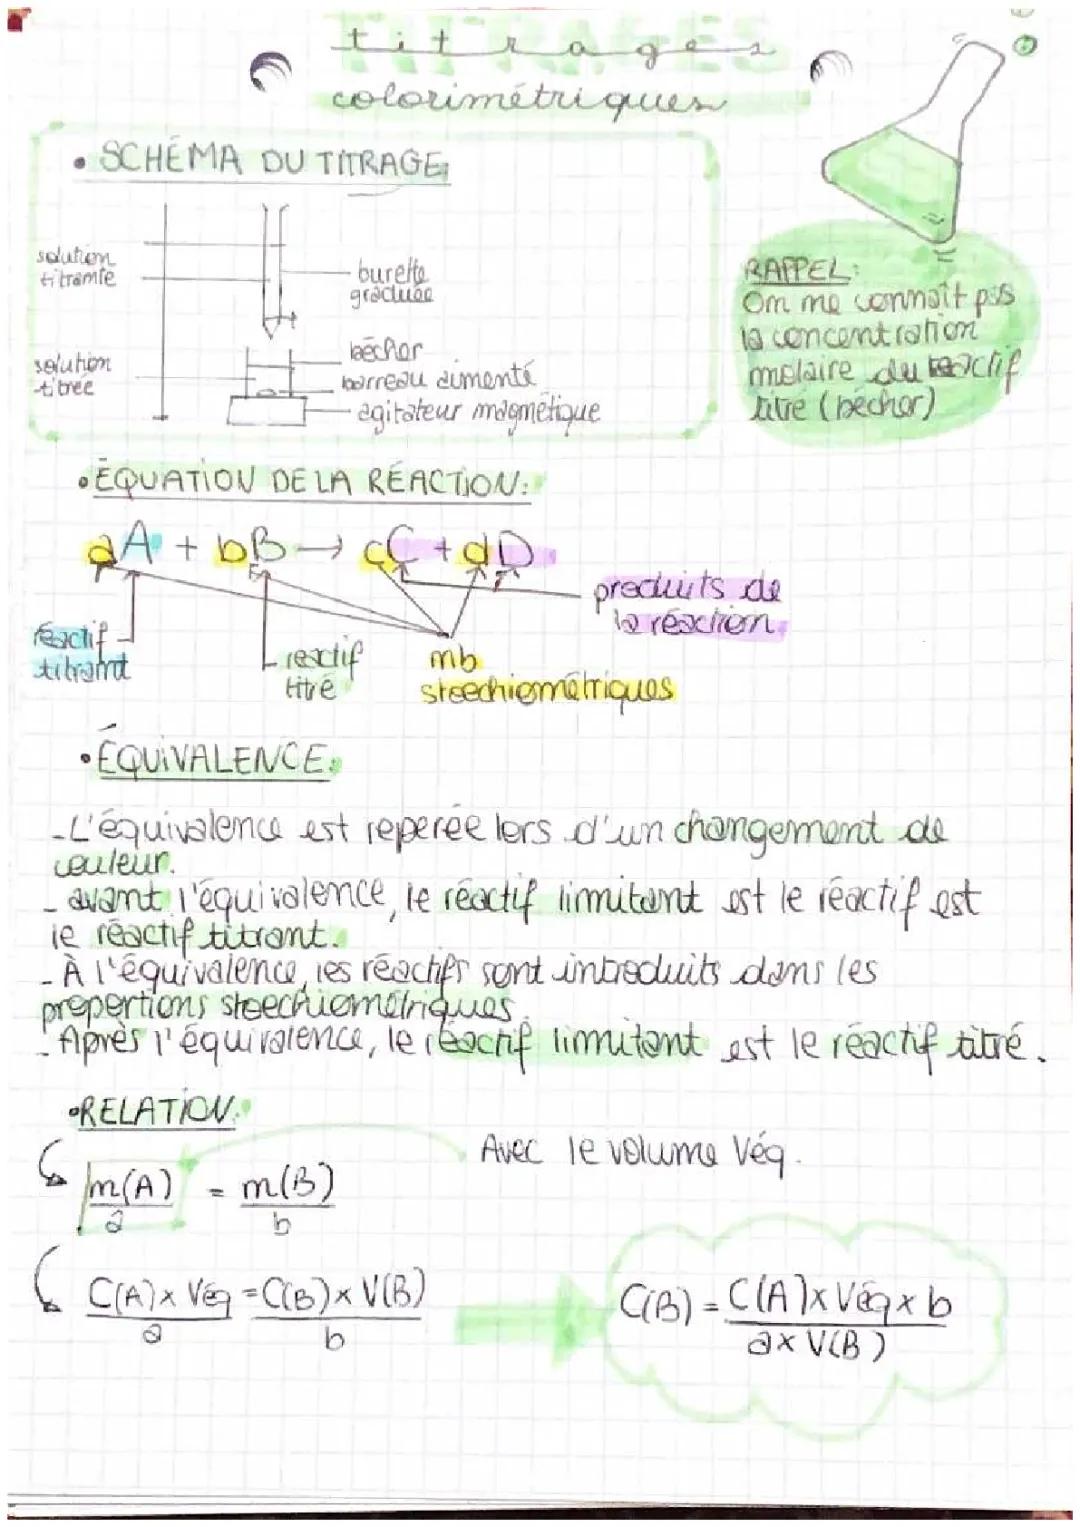 titrages
colorimétriques
• SCHÉMA DU TITRAGE:
solution
titrante
burette
graduée
solution
titrée
bécher
barreau aimanté
agitateur magnétique
RAPPEL:
On ne connaît pas
la concentration
molaire du réactif
titré (bécher)
• ÉQUATION DE LA RÉACTION:
aA + bB → cC + dD
produits de
la réaction
réactif
titrant
réactif
titré
nb
stœchiométriques
• ÉQUIVALENCE:
- L'équivalence est repérée lors d'un changement de
couleur.
- avant l'équivalence, le réactif limitant est le réactif est
le réactif titrant.
- À l'équivalence, les réactifs sont introduits dans les
proportions stœchiométriques.
- Après l'équivalence, le réactif limitant est le réactif titré.
• RELATION:
Avec le volume Véq.
n(A)/a = n(B)/b
C(A) x Véq / a = C(B) x V(B) / b
C(B) = C(A) x Véq x b / a x V(B)